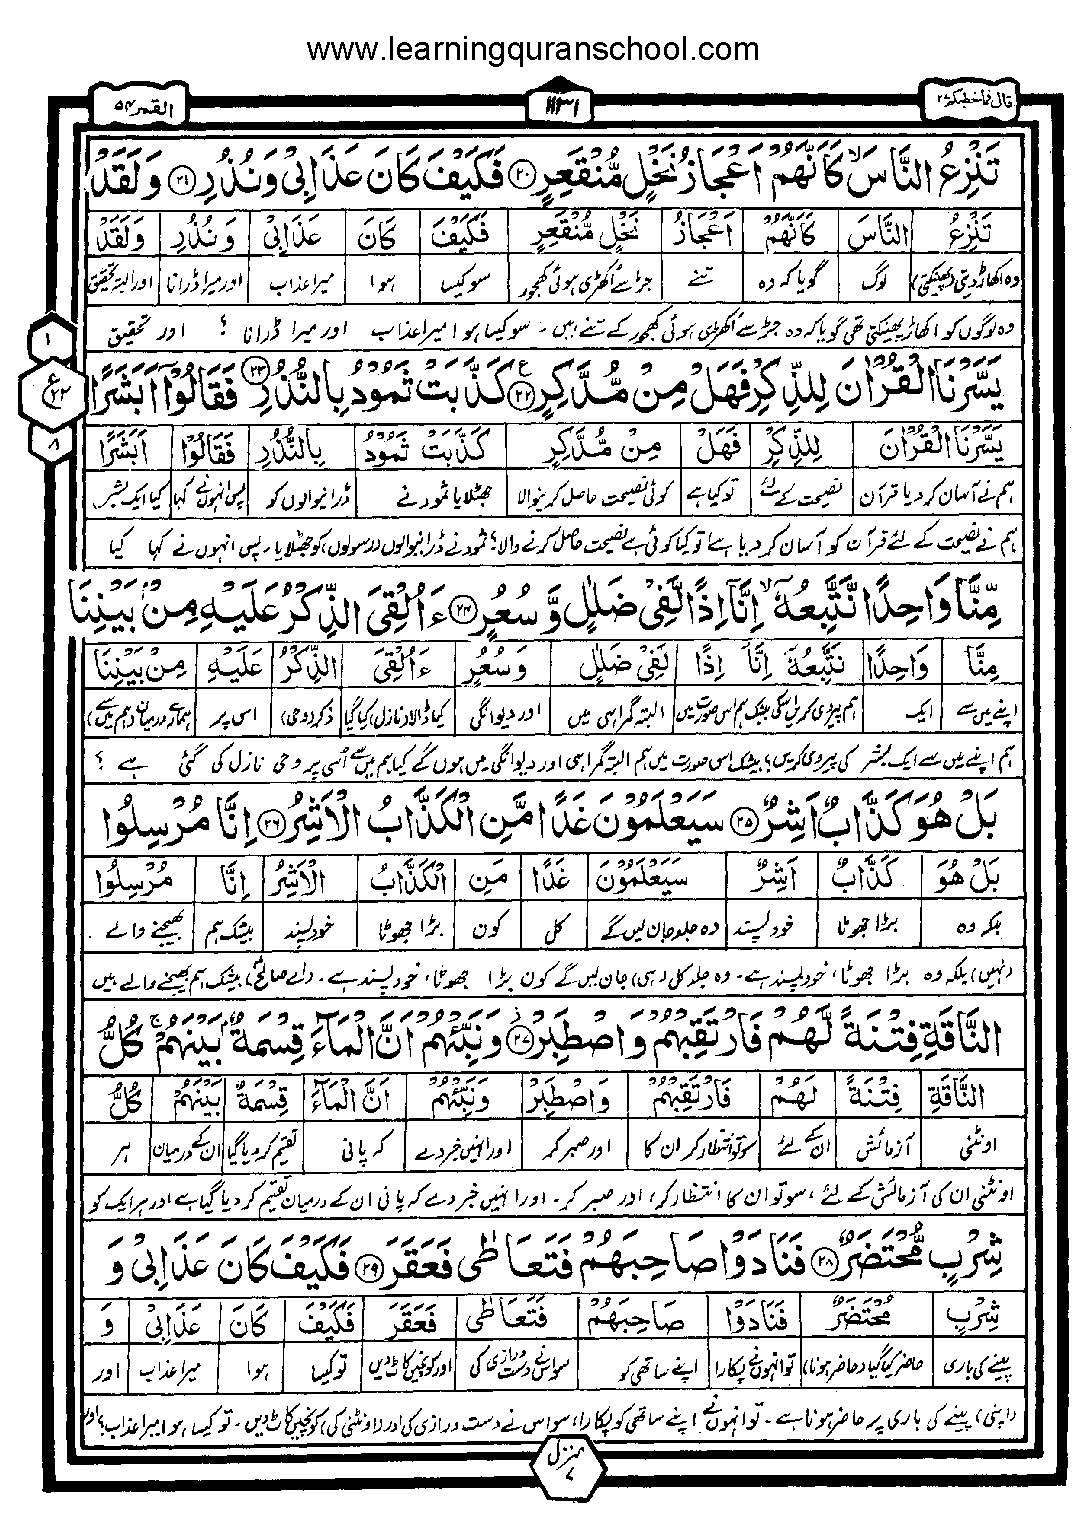 www.learningquranschool.com
قال فما خطبكم ٢٧
١١٣١
القمر ٥٤
تَنْزِعُ النَّاسَ ۙ كَاَنَّهُمْ اَعْجَازُ نَخْلٍ مُّنْقَعِرٍ ۝٢٠ فَكَيْفَ كَانَ عَذَابِىْ وَنُذُرِ ۝٢١ وَلَقَدْ
تَنْزِعُ النَّاسَ كَاَنَّهُمْ اَعْجَازُ نَخْلٍ مُّنْقَعِرٍ فَكَيْفَ كَانَ عَذَابِىْ وَنُذُرِ وَلَقَدْ
وہ اکھاڑ دیتی (پھینکتی) لوگ گویا کہ وہ تنے جڑ سے اُکھڑی ہوئی کھجور سو کیسا ہوا میرا عذاب اور میرا ڈرانا اور البتہ تحقیق
وہ لوگوں کو اکھاڑ پھینکتی تھی گویا کہ وہ جڑ سے اُکھڑی ہوئی کھجور کے تنے ہیں ۔ سو کیسا ہوا میرا عذاب اور میرا ڈرانا ؟ اور تحقیق
١
ع ٢٢
٨
يَسَّرْنَا الْقُرْاٰنَ لِلذِّكْرِ فَهَلْ مِنْ مُّدَّكِرٍ ۝٢٢ ع كَذَّبَتْ ثَمُوْدُ بِالنُّذُرِ ۝٢٣ فَقَالُوْٓا اَبَشَرًا
يَسَّرْنَا الْقُرْاٰنَ لِلذِّكْرِ فَهَلْ مِنْ مُّدَّكِرٍ كَذَّبَتْ ثَمُوْدُ بِالنُّذُرِ فَقَالُوْٓا اَبَشَرًا
ہم نے آسان کر دیا قرآن نصیحت کے لئے تو کیا ہے کوئی نصیحت حاصل کرنیوالا جھٹلایا ثمود نے ڈرانیوالوں کو پس انہوں نے کہا کیا ایک بشر
ہم نے نصیحت کے لئے قرآن کو آسان کر دیا ہے تو کیا کوئی ہے نصیحت حاصل کرنے والا؟ ثمود نے ڈرانیوالوں (رسولوں) کو جھٹلایا ۔ پس انہوں نے کہا کیا
مِّنَّا وَاحِدًا نَّتَّبِعُهٗٓ ۙ اِنَّآ اِذًا لَّفِىْ ضَلٰلٍ وَّسُعُرٍ ۝٢٤ ءَاُلْقِىَ الذِّكْرُ عَلَيْهِ مِنْۢ بَيْنِنَا
مِنَّا وَاحِدًا نَتَّبِعُهٗٓ اِنَّآ اِذًا لَفِىْ ضَلٰلٍ وَسُعُرٍ ءَاُلْقِىَ الذِّكْرُ عَلَيْهِ مِنْ بَيْنِنَا
اپنے میں سے ایک ہم پیروی کریں اسکی بیشک ہم اس صورت میں البتہ گمراہی میں اور دیوانگی کیا ڈالا (نازل) کیا گیا ذکر (وحی) اس پر ہمارے درمیان (ہم میں سے)
ہم اپنے میں سے ایک بشر کی پیروی کریں؟ بیشک اس صورت میں ہم البتہ گمراہی اور دیوانگی میں ہوں گے کیا ہم میں سے اُسی پر وحی نازل کی گئی ہے ؟
بَلْ هُوَ كَذَّابٌ اَشِرٌ ۝٢٥ سَيَعْلَمُوْنَ غَدًا مَّنِ الْكَذَّابُ الْاَشِرُ ۝٢٦ اِنَّا مُرْسِلُوا
بَلْ هُوَ كَذَّابٌ اَشِرٌ سَيَعْلَمُوْنَ غَدًا مَنِ الْكَذَّابُ الْاَشِرُ اِنَّا مُرْسِلُوا
بلکہ وہ بڑا جھوٹا خود پسند وہ جلد جان لیں گے کل کون بڑا جھوٹا خود پسند بیشک ہم بھیجنے والے
(نہیں) بلکہ وہ بڑا جھوٹا، خود پسند ہے ۔ وہ جلد کل (ہی) جان لیں گے کون بڑا جھوٹا، خود پسند ہے ۔ (اے صالحؑ) بیشک ہم بھیجنے والے ہیں
النَّاقَةِ فِتْنَةً لَّهُمْ فَارْتَقِبْهُمْ وَاصْطَبِرْ ۝٢٧ وَنَبِّئْهُمْ اَنَّ الْمَآءَ قِسْمَةٌۢ بَيْنَهُمْ ۚ كُلُّ
النَّاقَةِ فِتْنَةً لَهُمْ فَارْتَقِبْهُمْ وَاصْطَبِرْ وَنَبِّئْهُمْ اَنَّ الْمَآءَ قِسْمَةٌ بَيْنَهُمْ كُلُّ
اونٹنی آزمائش ان کے لئے سو تو انتظار کر ان کا اور صبر کر اور انہیں خبر دے کہ پانی تقسیم کر دیا گیا ان کے درمیان ہر
اونٹنی ان کی آزمائش کے لئے، سو تو ان کا انتظار کر، اور صبر کر ۔ اور انہیں خبر دے کہ پانی ان کے درمیان تقسیم کر دیا گیا ہے اور ہر ایک کو
شِرْبٍ مُّحْتَضَرٌ ۝٢٨ فَنَادَوْا صَاحِبَهُمْ فَتَعَاطٰى فَعَقَرَ ۝٢٩ فَكَيْفَ كَانَ عَذَابِىْ وَ
شِرْبٍ مُحْتَضَرٌ فَنَادَوْا صَاحِبَهُمْ فَتَعَاطٰى فَعَقَرَ فَكَيْفَ كَانَ عَذَابِىْ وَ
پینے کی باری حاضر کیا گیا (حاضر ہونا) تو انہوں نے پکارا اپنے ساتھی کو سو اس نے دست درازی کی اور کونچیں کاٹ دیں تو کیسا ہوا میرا عذاب اور
(اپنی) پینے کی باری پر حاضر ہونا ہے ۔ تو انہوں نے اپنے ساتھی کو پکارا، سو اس نے دست درازی کی اور (اونٹنی کی) کونچیں کاٹ دیں ۔ تو کیسا ہوا میرا عذاب؟ اور
منزل ٧